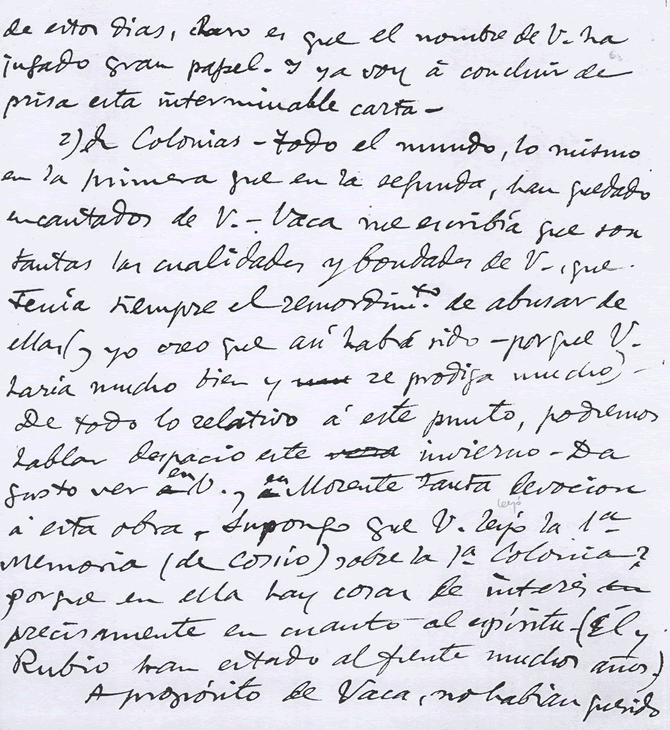 de estos dias, claro es que el nombre de V. ha
jugado gran papel. Y ya voy á concluir de
prisa esta interminable carta –
2) de Colonias – todo el mundo, lo mismo
en la primera que en la segunda, han quedado
encantados de V. – Vaca me escribía que son
tantas las cualidades y bondades de V., que
tenía siempre el remordimto. de abusar de
ellas (y yo creo que así habrá sido – porque V.
haria mucho bien y se prodiga mucho) –
De todo lo relativo á este punto, podremos
hablar despacio este invierno – Da
gusto ver en V. y en Morente tanta devocion
á esta obra. Supongo que V. leyó la 1ª
leyó
Memoria (de Cossío) sobre la 1ª Colonia?
porque en ella hay cosas de interés
precisamente en cuanto al espíritu – (Él y
Rubio han estado al frente muchos años)
A propósito de Vaca, no habian querido